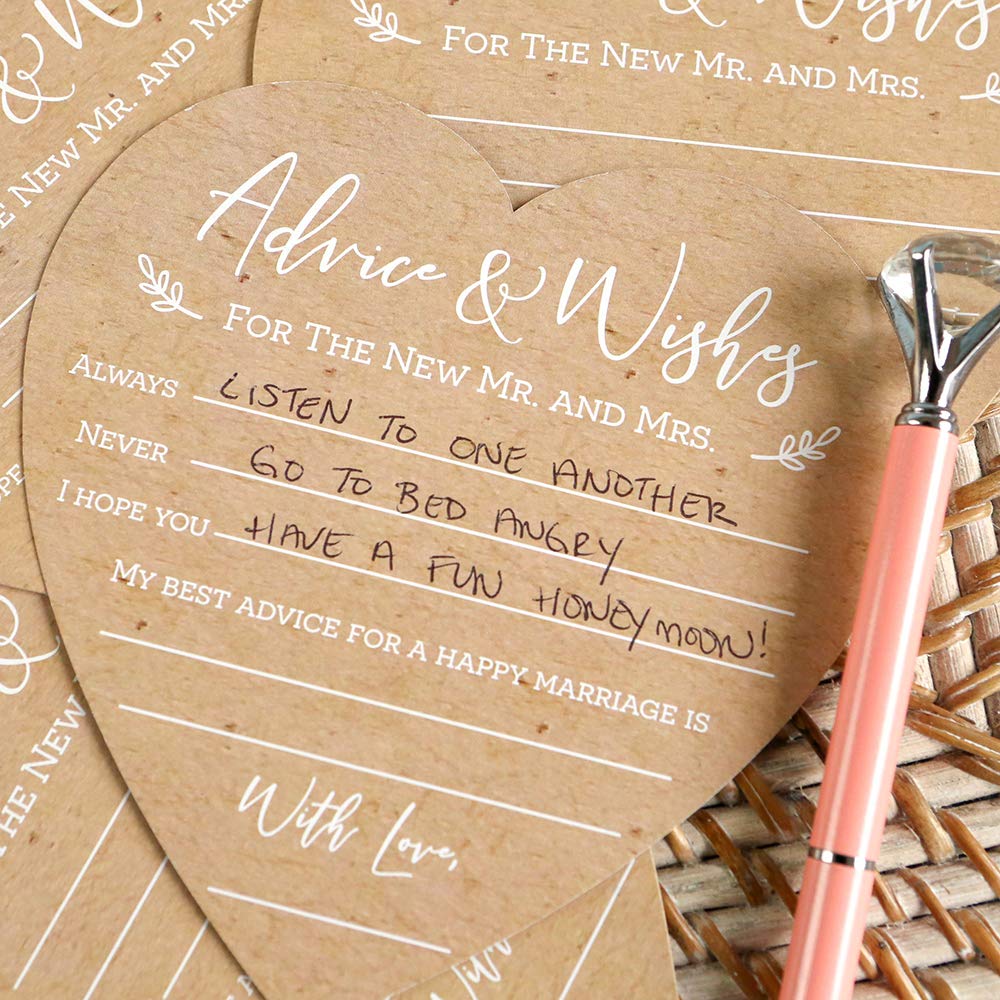 & W
NEW MR. AND MR
& Wishes
FOR THE NEW MR. AND MRS.
Advice & Wishes
FOR THE NEW MR. AND MRS.
ALWAYS LISTEN TO ONE ANOTHER
NEVER GO TO BED ANGRY
I HOPE YOU HAVE A FUN HONEYMOON!
MY BEST ADVICE FOR A HAPPY MARRIAGE IS
With Love,
HE NEW
With